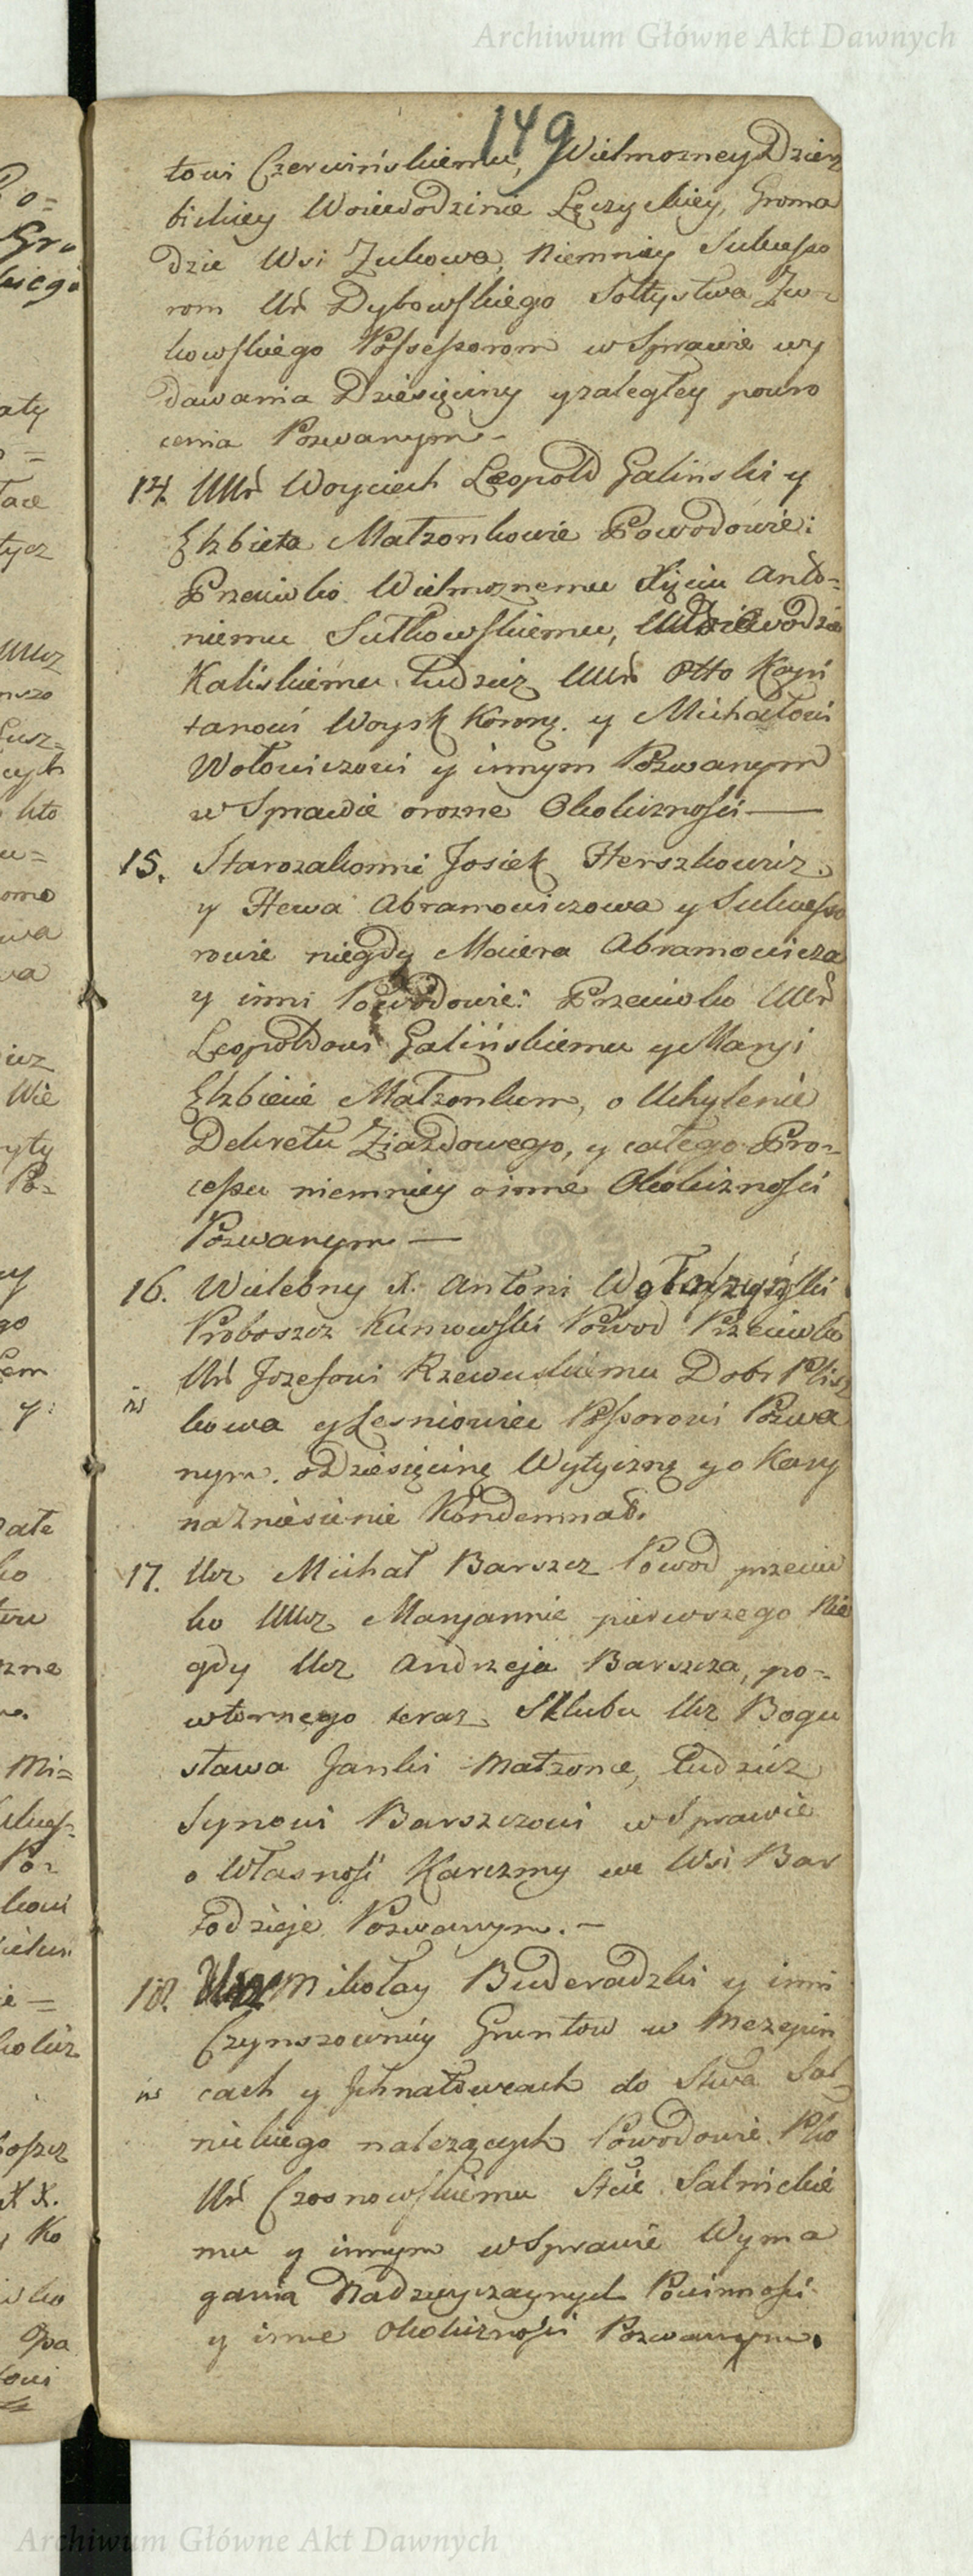 Archiwum Główne Akt Dawnych
149
towi Czerwińskiemu, Wielmozney Dzierz
bickiey Woiewodzinie Łęczyckiey, Groma
dzie Wsi Zukowa, niemniey Sukcesso
rom Ur Dybowskiego Sołtystwa Zu-
kowskiego Possessorom w Sprawie wy
dawania Dziesięciny y zaległey powro
cenia Pozwanym -
14. UUr Woyciech Leopold Galinski y
Elzbieta Małzonkowie Powodowie:
Przeciwko Wielmoznemu Xięciu Anto=
niemu Sułkowskiemu, Woiewodzie
Kaliskiemu tudziez UUr Otto Kapi
tanowi Woysk Koron. y Michałowi
Wołowiczowi y innym Pozwanym
w Sprawie o rozne Okoliczności —
15. Starozakonni Josiek Herszkowicz
y Hewa Abramowiczowa y Sukcesso
rowie niegdy Maiera Abramowicza
y inni Powodowie: Przeciwko UUr
Leopoldowi Galińskiemu y Maryi
Elzbiecie Małzonkom, o Uchylenie
Dekretu Ziazdowego, y całego Pro=
cessu niemniey o inne Okoliczności
Pozwanym —
16. Wielebny X. Antoni
Proboszcz Kunowski Powod Przeciwko
Ur Jozefowi Rzewuskiemu Dobr Plisz
ins
kowa y Lesniowiec Possorowi Pozwa
nym. o Dziesięcinę Wytyczną y o Kary
na Zniesienie Kondemnat.
17. Ur Michał Barszcz Powod przeciw
ko UUr Maryannie pierwszego nie
gdy Ur Andrzeja Barszcza, po=
wtornego teraz Slubu Ur Bogu
sława Janki Małzonce, tudziez
Synowi Barszczowi w Sprawie
o Własność Karczmy we Wsi Bar
łodzieje Pozwanym. -
18. Mikołay Buderadzki y inni
Czynszownicy Gruntow w Mezepin
ins
cach y Jchnatowcach do Stwa Sal=
nickiego nalezących Powodowie. Pko
Ur Czosnowskiemu Stcie Salnickie
mu y innym w Sprawie Wyma
gania Nadzwyczaynych Powinności
y inne Okoliczności Pozwanym.
Archiwum Główne Akt Dawnych